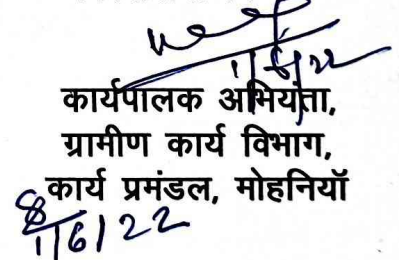 1/6/22
कार्यपालक अभियंता,
ग्रामीण कार्य विभाग,
कार्य प्रमंडल, मोहनियॉ
1/6/22